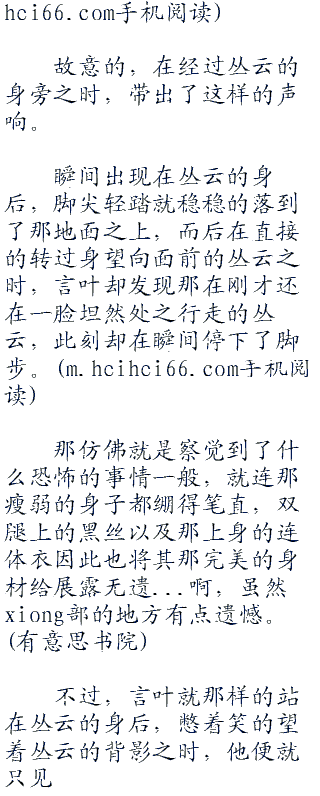 hci66.com手机阅读)
故意的，在经过丛云的
身旁之时，带出了这样的声
响。
瞬间出现在丛云的身
后，脚尖轻踏就稳稳的落到
了那地面之上，而后在直接
的转过身望向面前的丛云之
时，言叶却发现那在刚才还
在一脸坦然处之行走的丛
云，此刻却在瞬间停下了脚
步。(m.hcihci66.com手机阅
读)
那仿佛就是察觉到了什
么恐怖的事情一般，就连那
瘦弱的身子都绷得笔直，双
腿上的黑丝以及那上身的连
体衣因此也将其那完美的身
材给展露无遗...啊，虽然
xiong部的地方有点遗憾。
(有意思书院)
不过，言叶就那样的站
在丛云的身后，憋着笑的望
着丛云的背影之时，他便就
只见